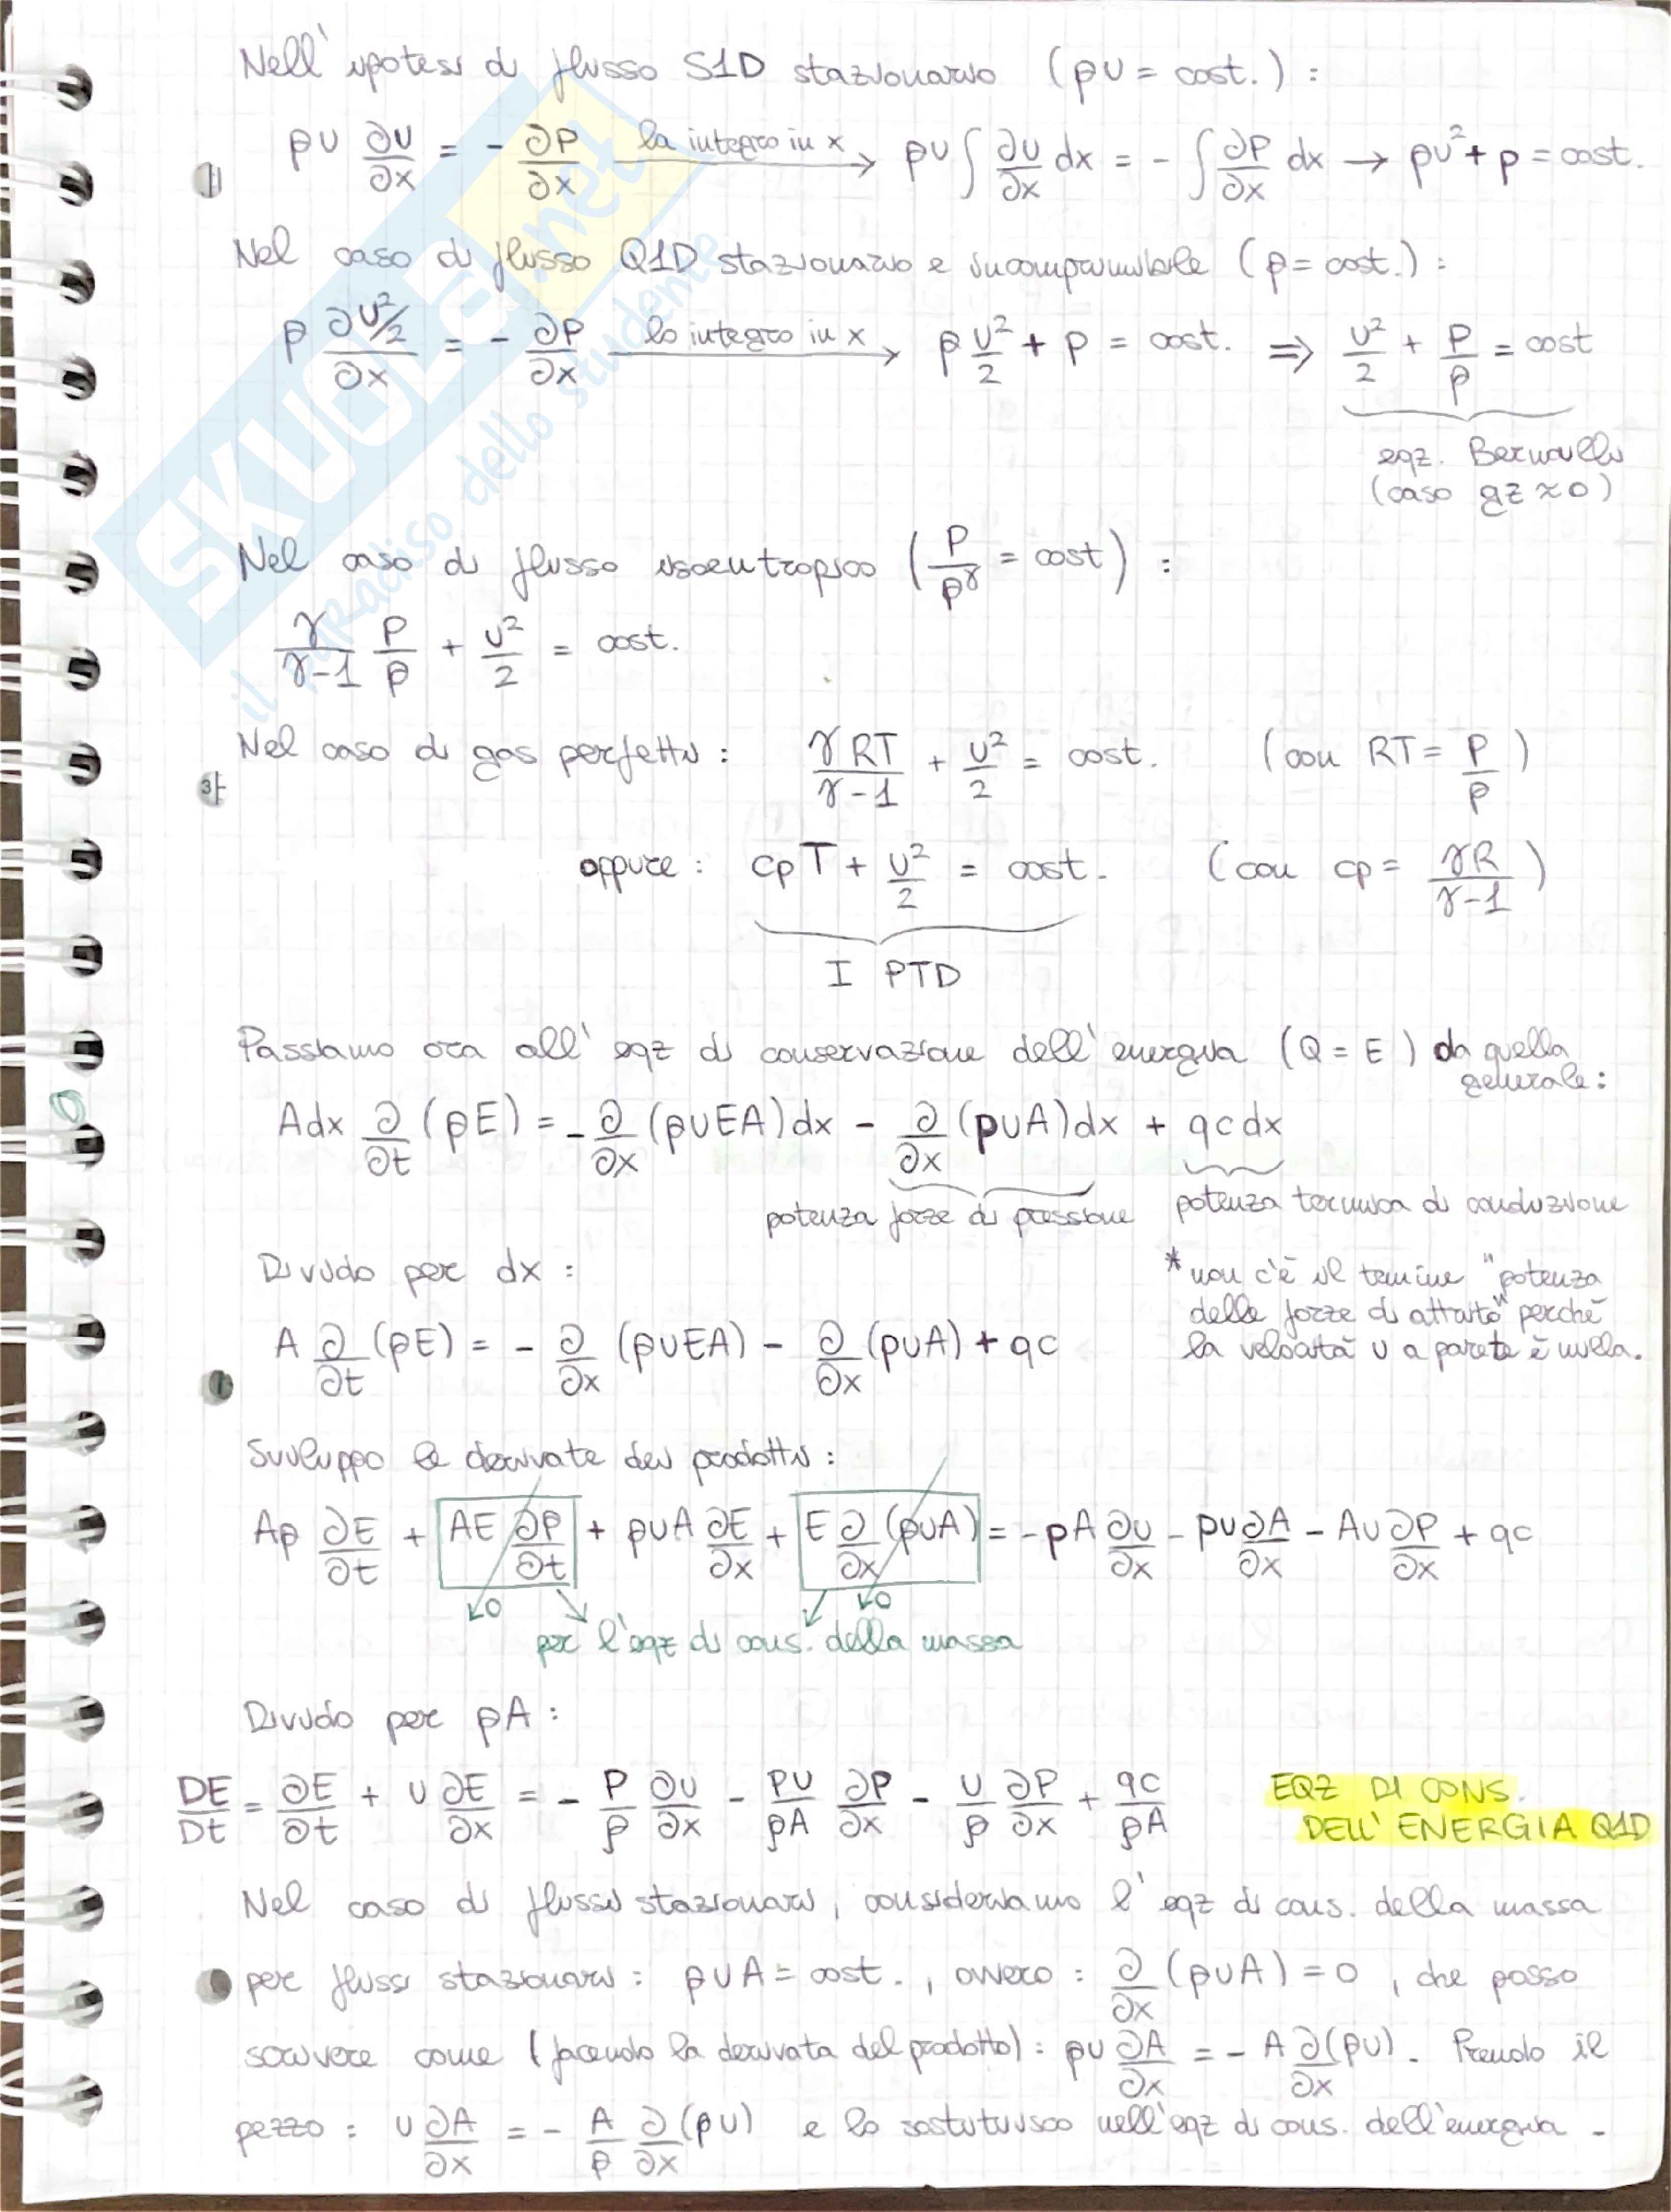 Nell' ipotesi di flusso S1D stazionario (ρu = cost.) :
ρu ∂u/∂x = - ∂P/∂x la integro in x → ρu ∫ ∂u/∂x dx = - ∫ ∂P/∂x dx → ρu² + p = cost.
1)
Nel caso di flusso Q1D stazionario e incomprimibile (ρ = cost.) :
ρ ∂u²/2/∂x = - ∂P/∂x lo integro in x → ρ u²/2 + p = cost. ⇒ u²/2 + P/ρ = cost
eqz. Bernoulli
(caso gz ≈ 0)
Nel caso di flusso isoentropico (P/ρ^γ = cost) :
γ/γ-1 P/ρ + u²/2 = cost.
Nel caso di gas perfetti : γRT/γ-1 + u²/2 = cost. (con RT = P/ρ)
oppure : cpT + u²/2 = cost. (con cp = γR/γ-1)
I PTD
Passiamo ora all' eqz di conservazione dell' energia (Q = E) da quella
generale :
Adx ∂/∂t (ρE) = - ∂/∂x (ρuEA)dx - ∂/∂x (puA)dx + qcdx
potenza forze di pressione potenza termica di conduzione
Divido per dx :
* non c'è il termine "potenza
delle forze di attrito" perchè
la velocità u a parete è nulla.
A ∂/∂t (ρE) = - ∂/∂x (ρuEA) - ∂/∂x (puA) + qc
Sviluppo le derivate dei prodotti :
Aρ ∂E/∂t + AE ∂ρ/∂t + ρuA ∂E/∂x + E ∂/∂x (ρuA) = -pA ∂u/∂x - pu ∂A/∂x - Au ∂P/∂x + qc
0 0
per l'eqz di cons. della massa
Divido per ρA :
DE/Dt = ∂E/∂t + u ∂E/∂x = - P/ρ ∂u/∂x - Pu/ρA ∂P/∂x - u/ρ ∂P/∂x + qc/ρA
EQZ DI CONS.
DELL' ENERGIA Q1D
Nel caso di flussi stazionari, consideriamo l' eqz di cons. della massa
per flussi stazionari : ρuA = cost. , ovvero : ∂/∂x (ρuA) = 0 , che posso
scrivere come (facendo la derivata del prodotto) : ρu ∂A/∂x = - A ∂(ρu)/∂x . Prendo il
pezzo : u ∂A/∂x = - A/ρ ∂/∂x (ρu) e lo sostituisco nell'eqz di cons. dell'energia -
SKUOLA.net
il paradiso dello studente